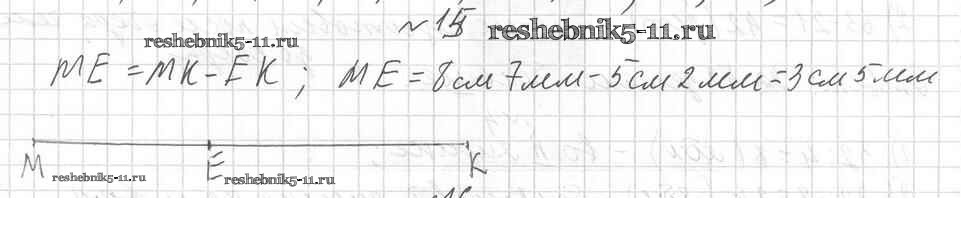 №15 reshebnik5-11.ru
reshebnik5-11.ru
ME = MK - EK ; ME = 8 см 7 мм - 5 см 2 мм = 3 см 5 мм
M E K
reshebnik5-11.ru reshebnik5-11.ru